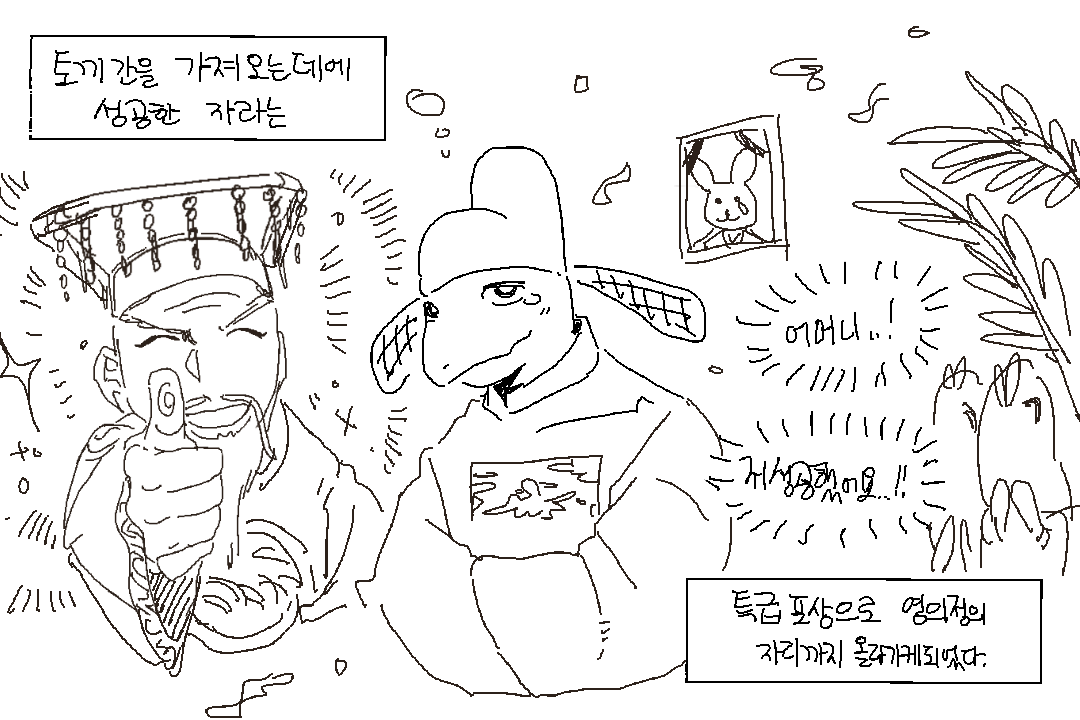 토끼간을 가져오는데에
성공한 자라는
어머니..!
저성공했어요...!!
특급포상으로 영의정의
자리까지 올라가게되었다.